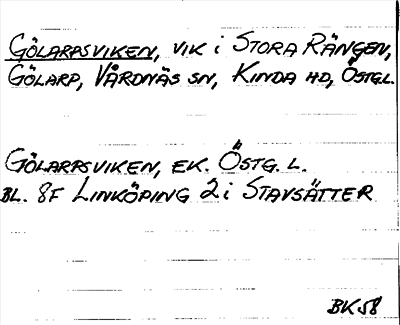 GÖLARPSVIKEN, VIK i STORA RÄNGEN,
GÖLARP, VÅRDNÄS SN, KINDA HD, ÖSTGL.
GÖLARPSVIKEN, EK. ÖSTG. L.
BL. 8F LINKÖPING 2i STAVSÄTTER
BK58